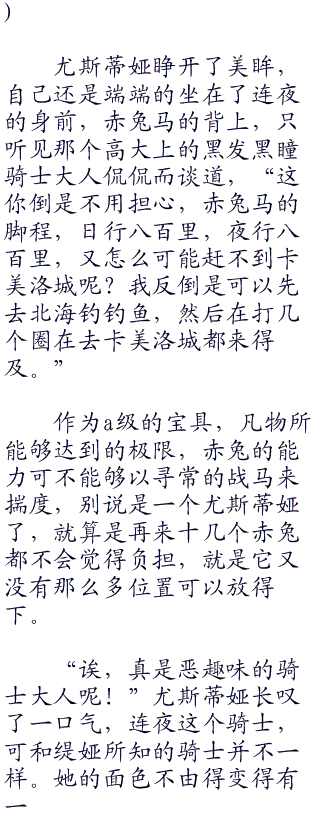 )
尤斯蒂娅睁开了美眸，
自己还是端端的坐在了连夜
的身前，赤兔马的背上，只
听见那个高大上的黑发黑瞳
骑士大人侃侃而谈道，“这
你倒是不用担心，赤兔马的
脚程，日行八百里，夜行八
百里，又怎么可能赶不到卡
美洛城呢？我反倒是可以先
去北海钓钓鱼，然后在打几
个圈在去卡美洛城都来得
及。”
作为a级的宝具，凡物所
能够达到的极限，赤兔的能
力可不能够以寻常的战马来
揣度，别说是一个尤斯蒂娅
了，就算是再来十几个赤兔
都不会觉得负担，就是它又
没有那么多位置可以放得
下。
“诶，真是恶趣味的骑
士大人呢！”尤斯蒂娅长叹
了一口气，连夜这个骑士，
可和缇娅所知的骑士并不一
样。她的面色不由得变得有
一